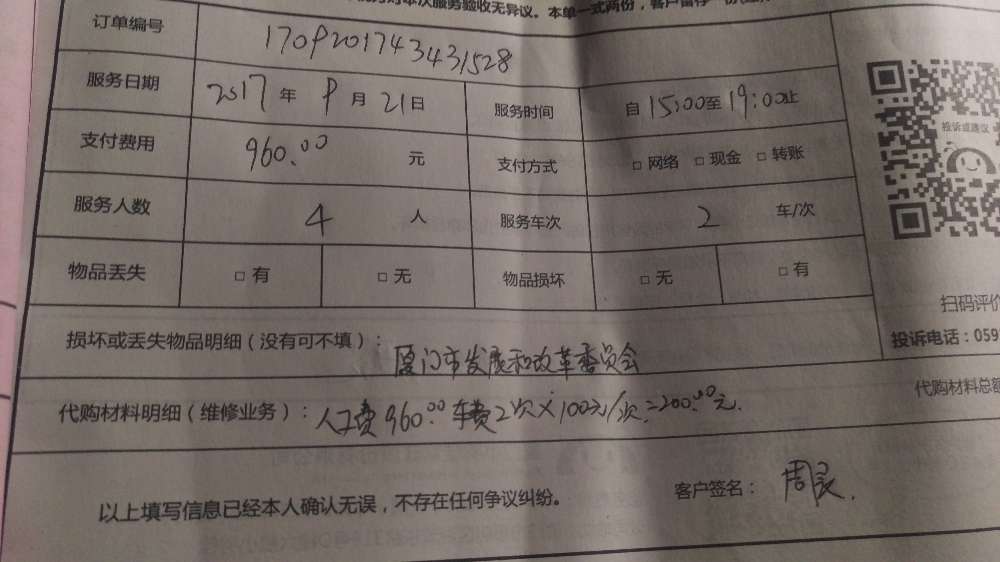 对本次服务验收无异议。本单一式两份，客户留存一份
订单编号 170920174343431528
服务日期 2017年9月21日 服务时间 自15:00至19:00止
支付费用 960.00 元 支付方式 □ 网络 □ 现金 □ 转账
服务人数 4 人 服务车次 2 车/次
物品丢失 □ 有 □ 无 物品损坏 □ 无 □ 有
投诉或建议
扫码评价
损坏或丢失物品明细（没有可不填）： 厦门市发展和改革委员会
投诉电话：059
代购材料总额
代购材料明细（维修业务）： 人工费960.00 车费2次×100元/次=200.00元.
以上填写信息已经本人确认无误，不存在任何争议纠纷。 客户签名： 周